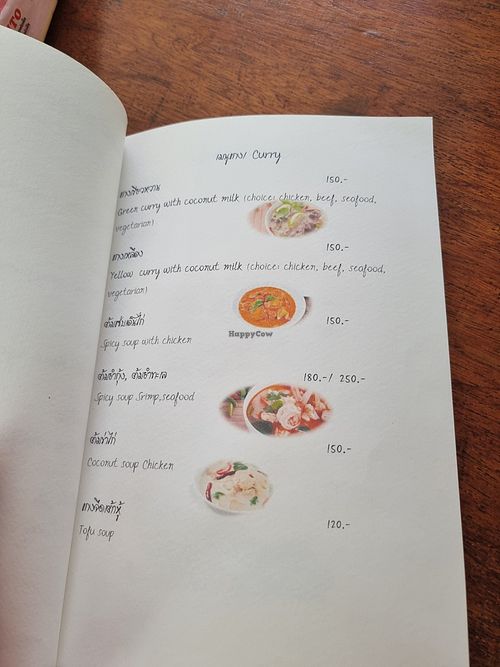 เมนูแกง/ Curry
150.-
แกงเขียวหวาน
Green curry with coconut milk (choice: chicken, beef, seafood,
vegetarian)
150.-
แกงเหลือง
Yellow curry with coconut milk (choice: chicken, beef, seafood,
vegetarian)
150.-
Spicy soup with chicken
HappyCow
ต้มยำกุ้ง, ต้มยำทะเล 180.-/ 250.-
Spicy soup Srimp,seafood
ต้มข่าไก่
150.-
Coconut soup Chicken
แกงจืดเต้าหู้
120.-
Tofu soup